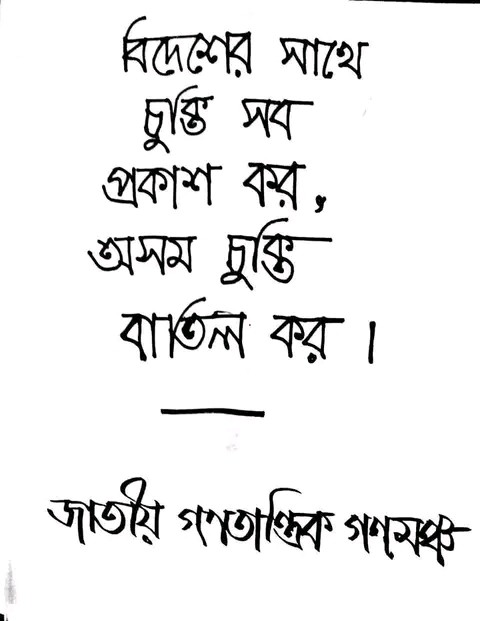 বিদেশের সাথে
চুক্তি সব
প্রকাশ কর,
অসম চুক্তি
বাতিল কর।
জাতীয় গণতান্ত্রিক গণমঞ্চ